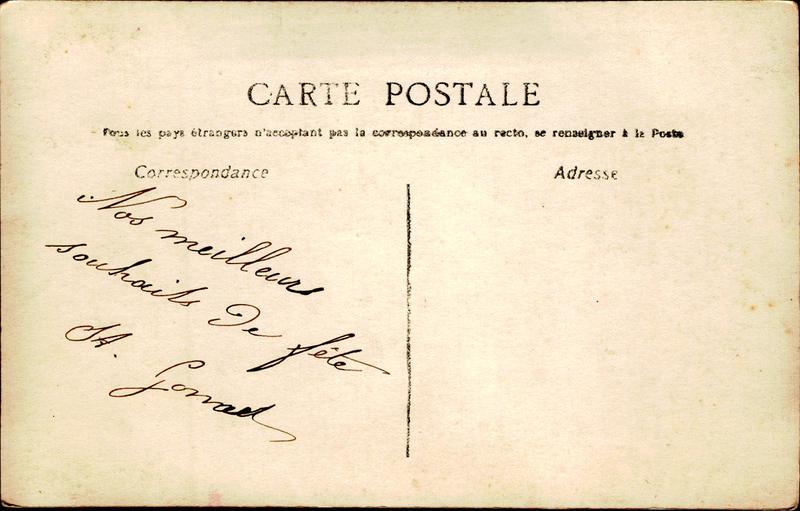 CARTE POSTALE
Tous les pays étrangers n'acceptant pas la correspondance au recto, se renseigner à la Poste
Correspondance
Adresse
Nos meilleurs
souhaits de fête